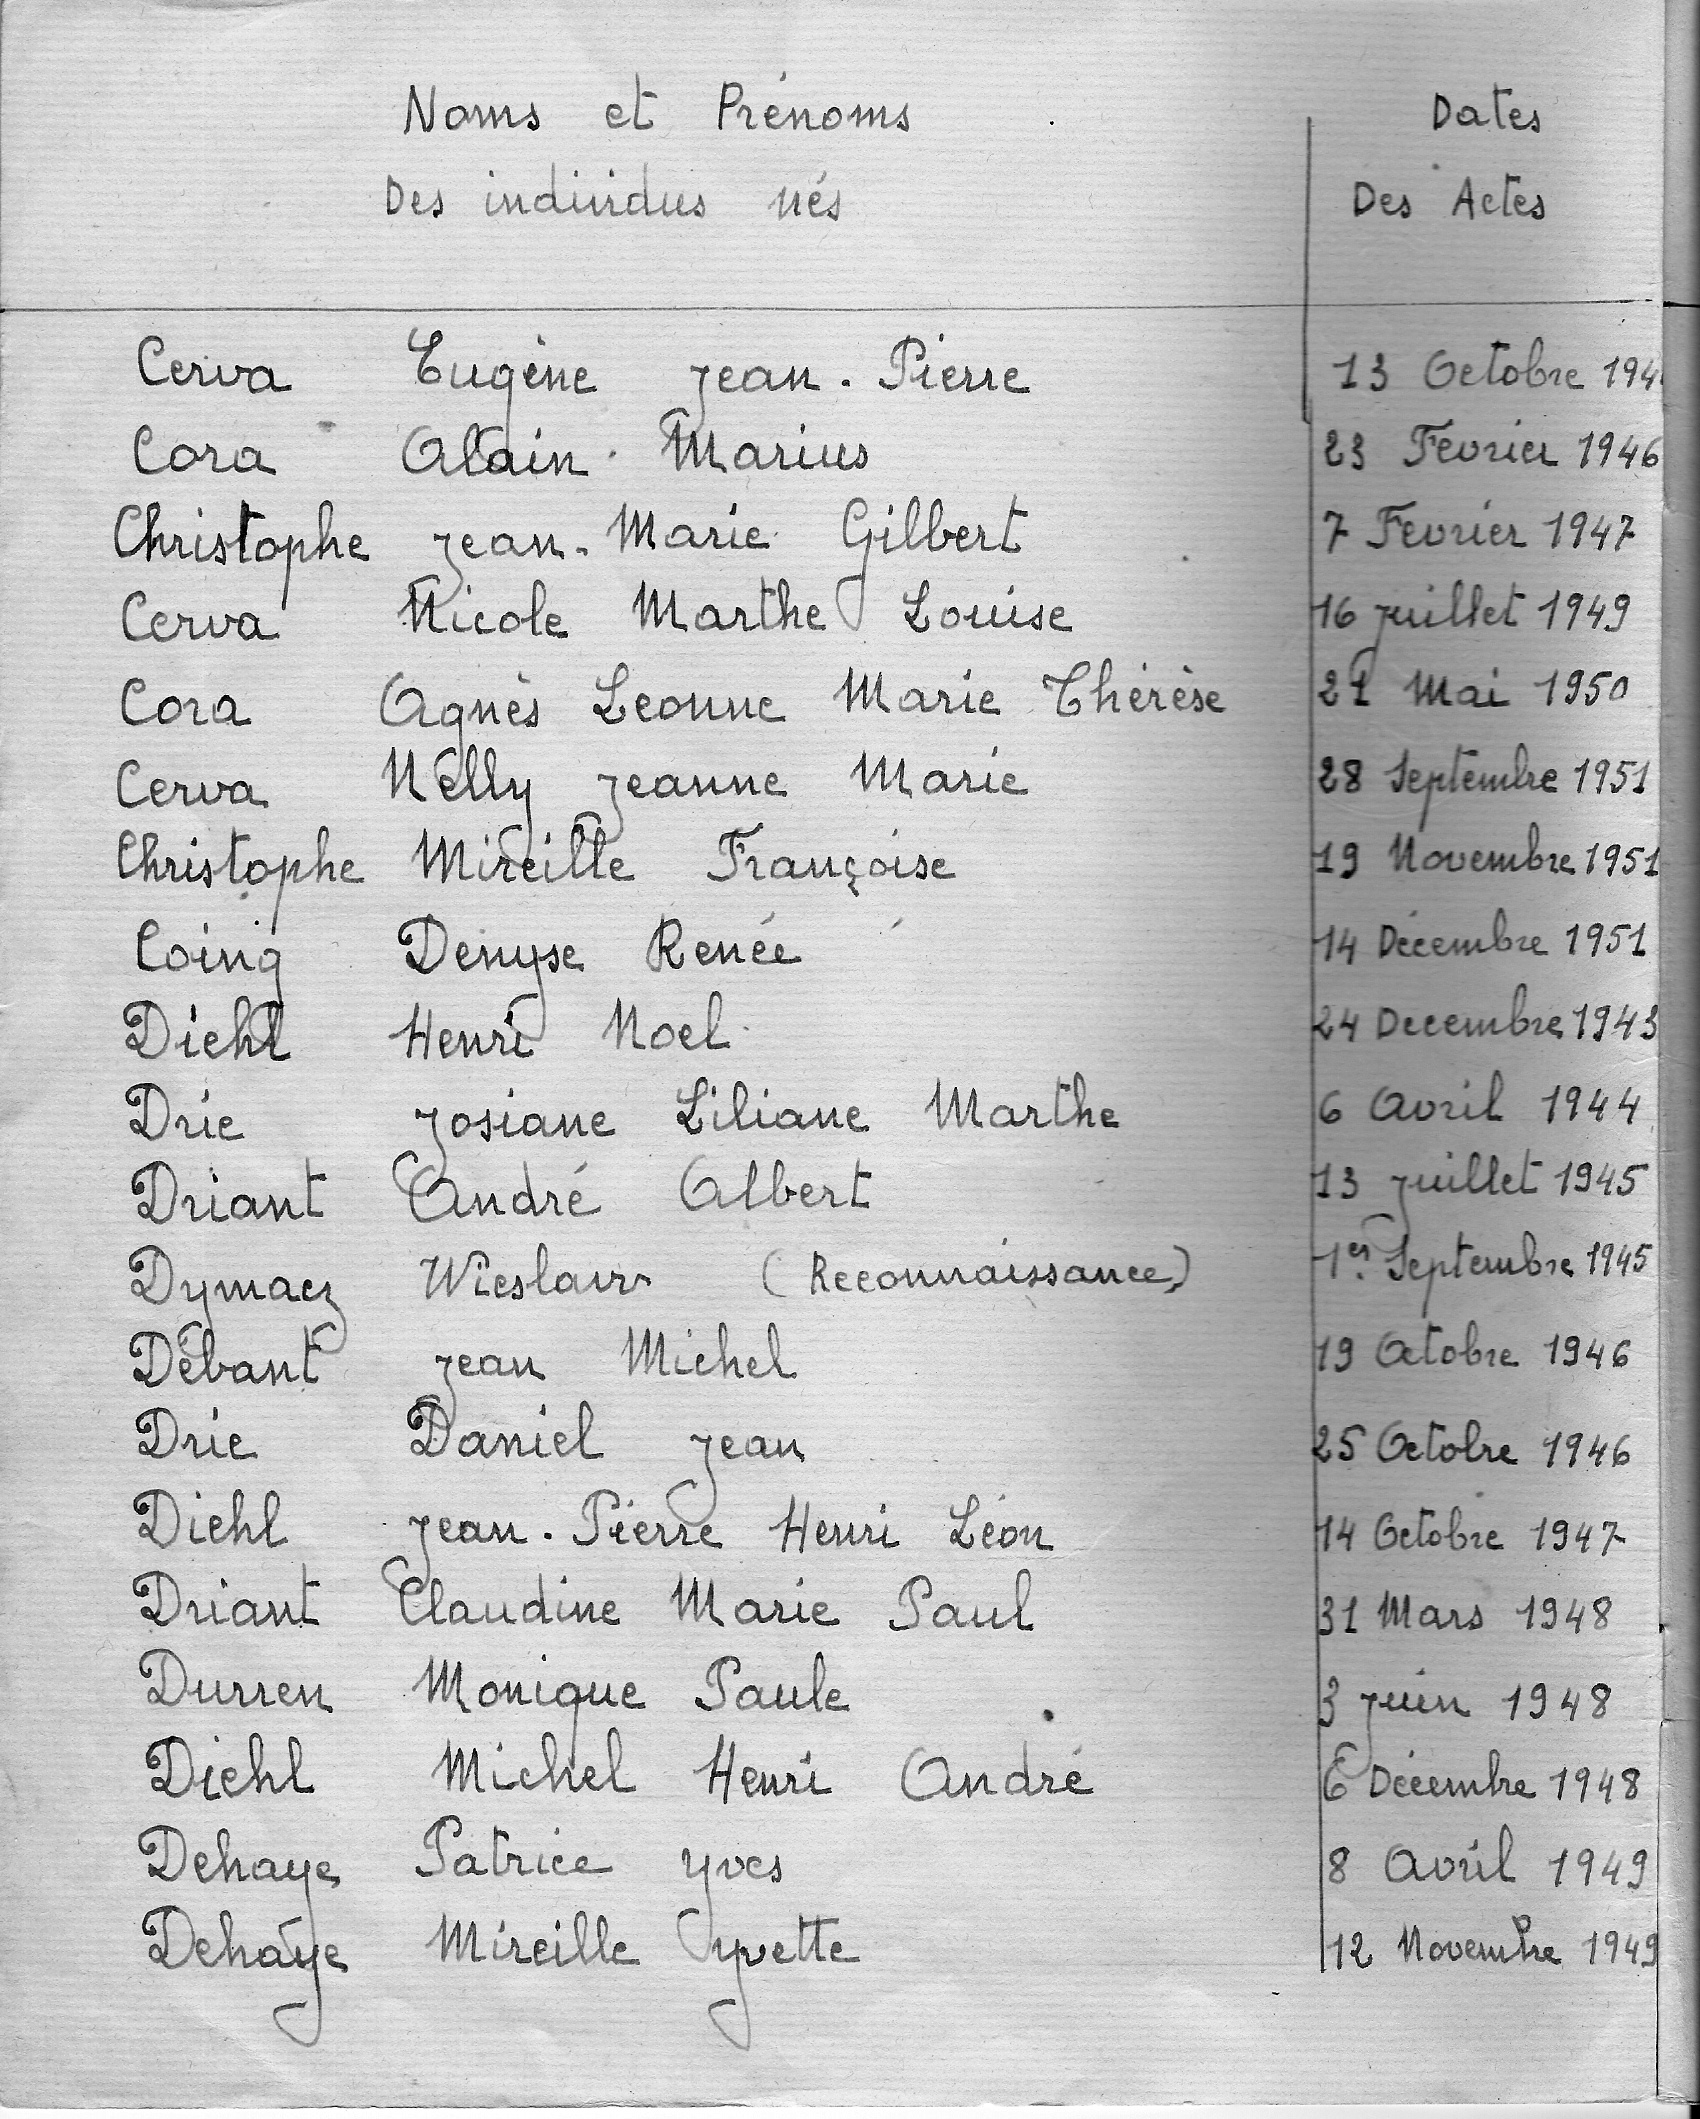 Noms et Prénoms Dates
Des individus nés Des Actes
Cerva Eugène Jean-Pierre 13 Octobre 194
Cora Alain Marius 23 Fevrier 1946
Christophe Jean-Marie Gilbert 7 Fevrier 1947
Cerva Nicole Marthe Louise 16 Juillet 1949
Cora Agnès Leonne Marie Thérèse 21 Mai 1950
Cerva Nelly Jeanne Marie 28 Septembre 1951
Christophe Mireille Françoise 19 Novembre 1951
Coing Denyse Renée 14 Décembre 1951
Diehl Henri Noel 24 Decembre 1943
Drie Josiane Liliane Marthe 6 Avril 1944
Driant André Albert 13 Juillet 1945
Dymacz Wieslaw (Reconnaissance) 1er Septembre 1945
Debant Jean Michel 19 Octobre 1946
Drie Daniel Jean 25 Octobre 1946
Diehl Jean-Pierre Henri Léon 14 Octobre 1947
Driant Claudine Marie Paul 31 Mars 1948
Durren Monique Paule 3 Juin 1948
Diehl Michel Henri André 6 Décembre 1948
Dehaye Patrice Yves 8 Avril 1949
Dehaye Mireille Yvette 12 Novembre 1949